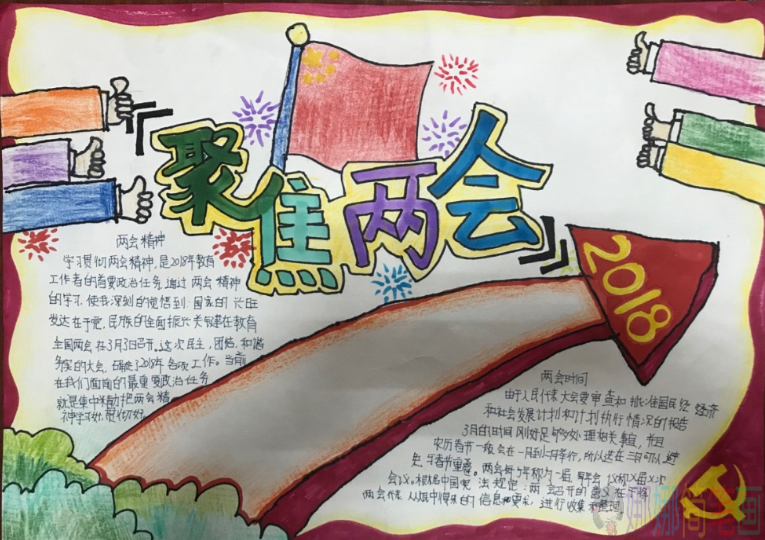 聚焦两会
2018
两会精神
学习贯彻两会精神,是2018年教育
工作者的首要政治任务,通过两会精神
的学习,使我深刻的觉悟到:国家的兴旺
发达在于党,民族的全面振兴关键在教育
全国两会在3月3日召开。这次民主,团结,和谐
务实的大会,
2018年各项工作。当前
在我们面前的最重要政治任务
就是集中精力把两会精
神学习好,贯彻好
两会时间
由于人民代表大会要审查和批准国民经济
和社会发展计划和计划执行情况的报告
3月的时间刚好足够处理相关事宜,并且
农历春节一般会在一月到二月举行,所以选在三月可以避
免与春节重叠。两会每5年称为一届,每年会议称X届X次
会议。根据中国宪法规定:两会召开的意义在于将
两会代表从
中得来的信息和要求进行收集
娜娜简笔画